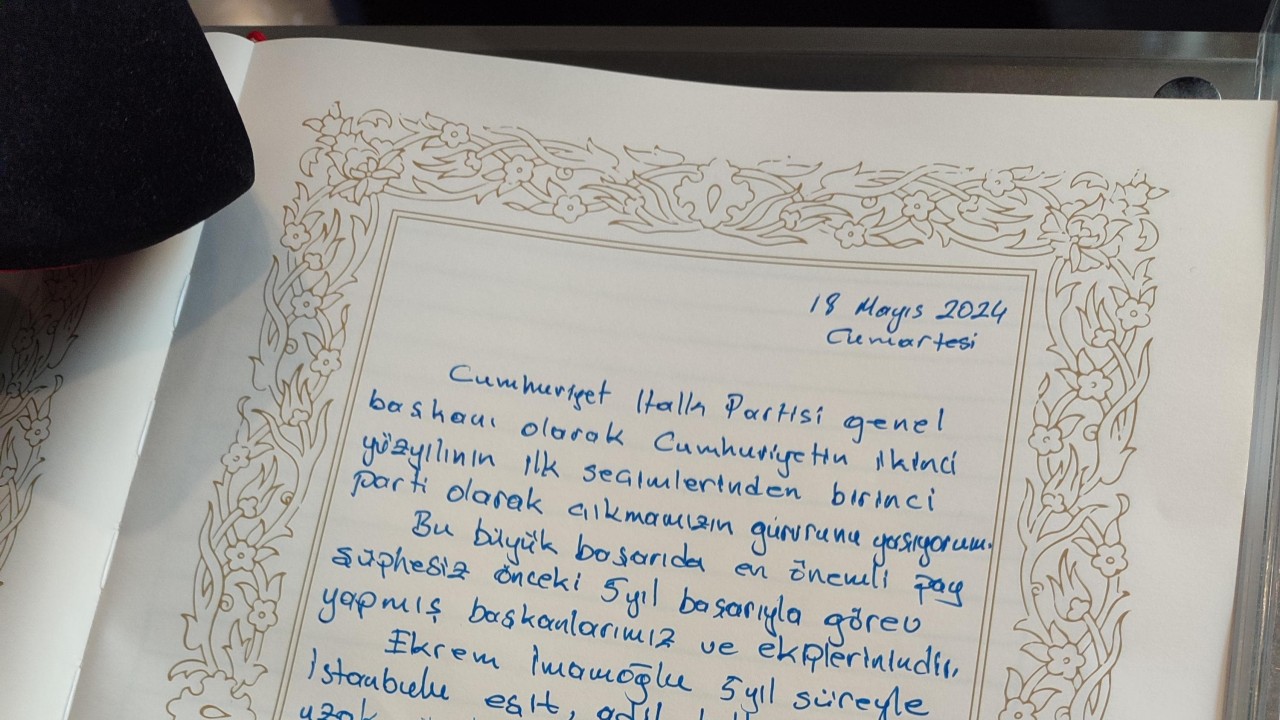 18 Mayıs 2024
Cumartesi
Cumhuriyet Halk Partisi genel
başkanı olarak Cumhuriyetin ikinci
yüzyılının ilk seçimlerinden birinci
parti olarak çıkmamızın gururunu yaşıyorum.
Bu büyük başarıda en önemli pay
şüphesiz önceki 5 yıl başarıyla görev
yapmış başkanlarımız ve ekiplerinindir.
Ekrem İmamoğlu 5 yıl süreyle
İstanbulu eşit, adil
uzak